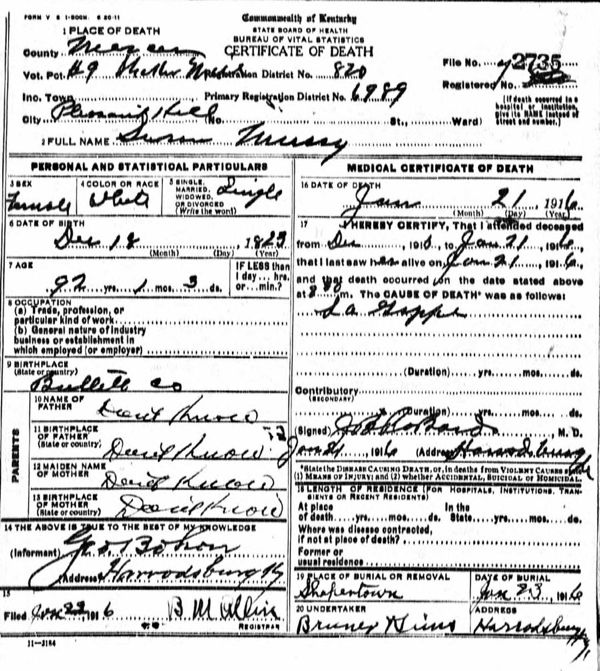 FORM V S 1-500M. 6 20-11
Commonwealth of Kentucky
STATE BOARD OF HEALTH
BUREAU OF VITAL STATISTICS
CERTIFICATE OF DEATH
1 PLACE OF DEATH
County Mercer
Vot. Pct. #9 Registration District No. 820
File No. 2735
Registered No.
Inc. Town Primary Registration District No. 6989
City Pleasant Hill (No. St., Ward)
(If death occurred in a hospital or institution, give its NAME instead of street and number.)
2 FULL NAME Susan Mussy
PERSONAL AND STATISTICAL PARTICULARS
3 SEX Female
4 COLOR OR RACE White
5 SINGLE, MARRIED, WIDOWED, OR DIVORCED (Write the word) Single
6 DATE OF BIRTH
Dec 18, 1823
(Month) (Day) (Year)
7 AGE
92 yrs. 1 mos. 3 ds.
IF LESS than 1 day... hrs. or... min.?
8 OCCUPATION
(a) Trade, profession, or particular kind of work
(b) General nature of industry business or establishment in which employed (or employer)
9 BIRTHPLACE
(State or country)
Bullett Co
PARENTS
10 NAME OF FATHER Dont Know
11 BIRTHPLACE OF FATHER (State or country) Dont Know
12 MAIDEN NAME OF MOTHER Dont Know
13 BIRTHPLACE OF MOTHER (State or country) Dont Know
14 THE ABOVE IS TRUE TO THE BEST OF MY KNOWLEDGE
(Informant) Geo Bohon
(Address) Harrodsburg Ky
15
Filed Jan 22 1916 B M Allin
REGISTRAR
11-3184
MEDICAL CERTIFICATE OF DEATH
16 DATE OF DEATH
Jan 21, 1916
(Month) (Day) (Year)
17 I HEREBY CERTIFY, That I attended deceased
from Dec, 1915, to Jan 21, 1916,
that I last saw her alive on Jan 21, 1916,
and that death occurred on the date stated above
at m. The CAUSE OF DEATH* was as follows:
La Grippe
(Duration) yrs. mos. ds.
Contributory
(SECONDARY)
(Duration) yrs. mos. ds.
(Signed) M. D.
Jan 21, 1916 (Address) Harrodsburg
*State the DISEASE CAUSING DEATH, or, in deaths from VIOLENT CAUSES state (1) MEANS OF INJURY; and (2) whether ACCIDENTAL, SUICIDAL or HOMICIDAL.
18 LENGTH OF RESIDENCE (FOR HOSPITALS, INSTITUTIONS, TRANSIENTS OR RECENT RESIDENTS)
At place of death... yrs. mos. ds. In the State... yrs. mos. ds.
Where was disease contracted, if not at place of death?
Former or usual residence
19 PLACE OF BURIAL OR REMOVAL
Shakertown
DATE OF BURIAL
Jan 23 1916
20 UNDERTAKER
Bruner & Sims
ADDRESS
Harrodsburg Ky